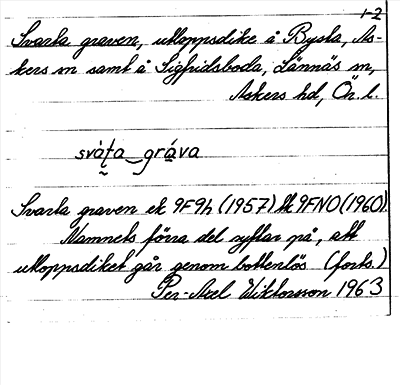 1-2
Svarta graven, utloppsdike å Bysta, As-
kers sn samt å Sigfridsboda, Lännäs sn,
Askers hd, Ör. l.
svàṭa grava
Svarta graven ek 9F9h (1957) tk 9FNO (1960).
Namnets förra del syftar på, att
utloppsdiket går genom bottenlös (forts.)
Per-Axel Wiktorsson 1963